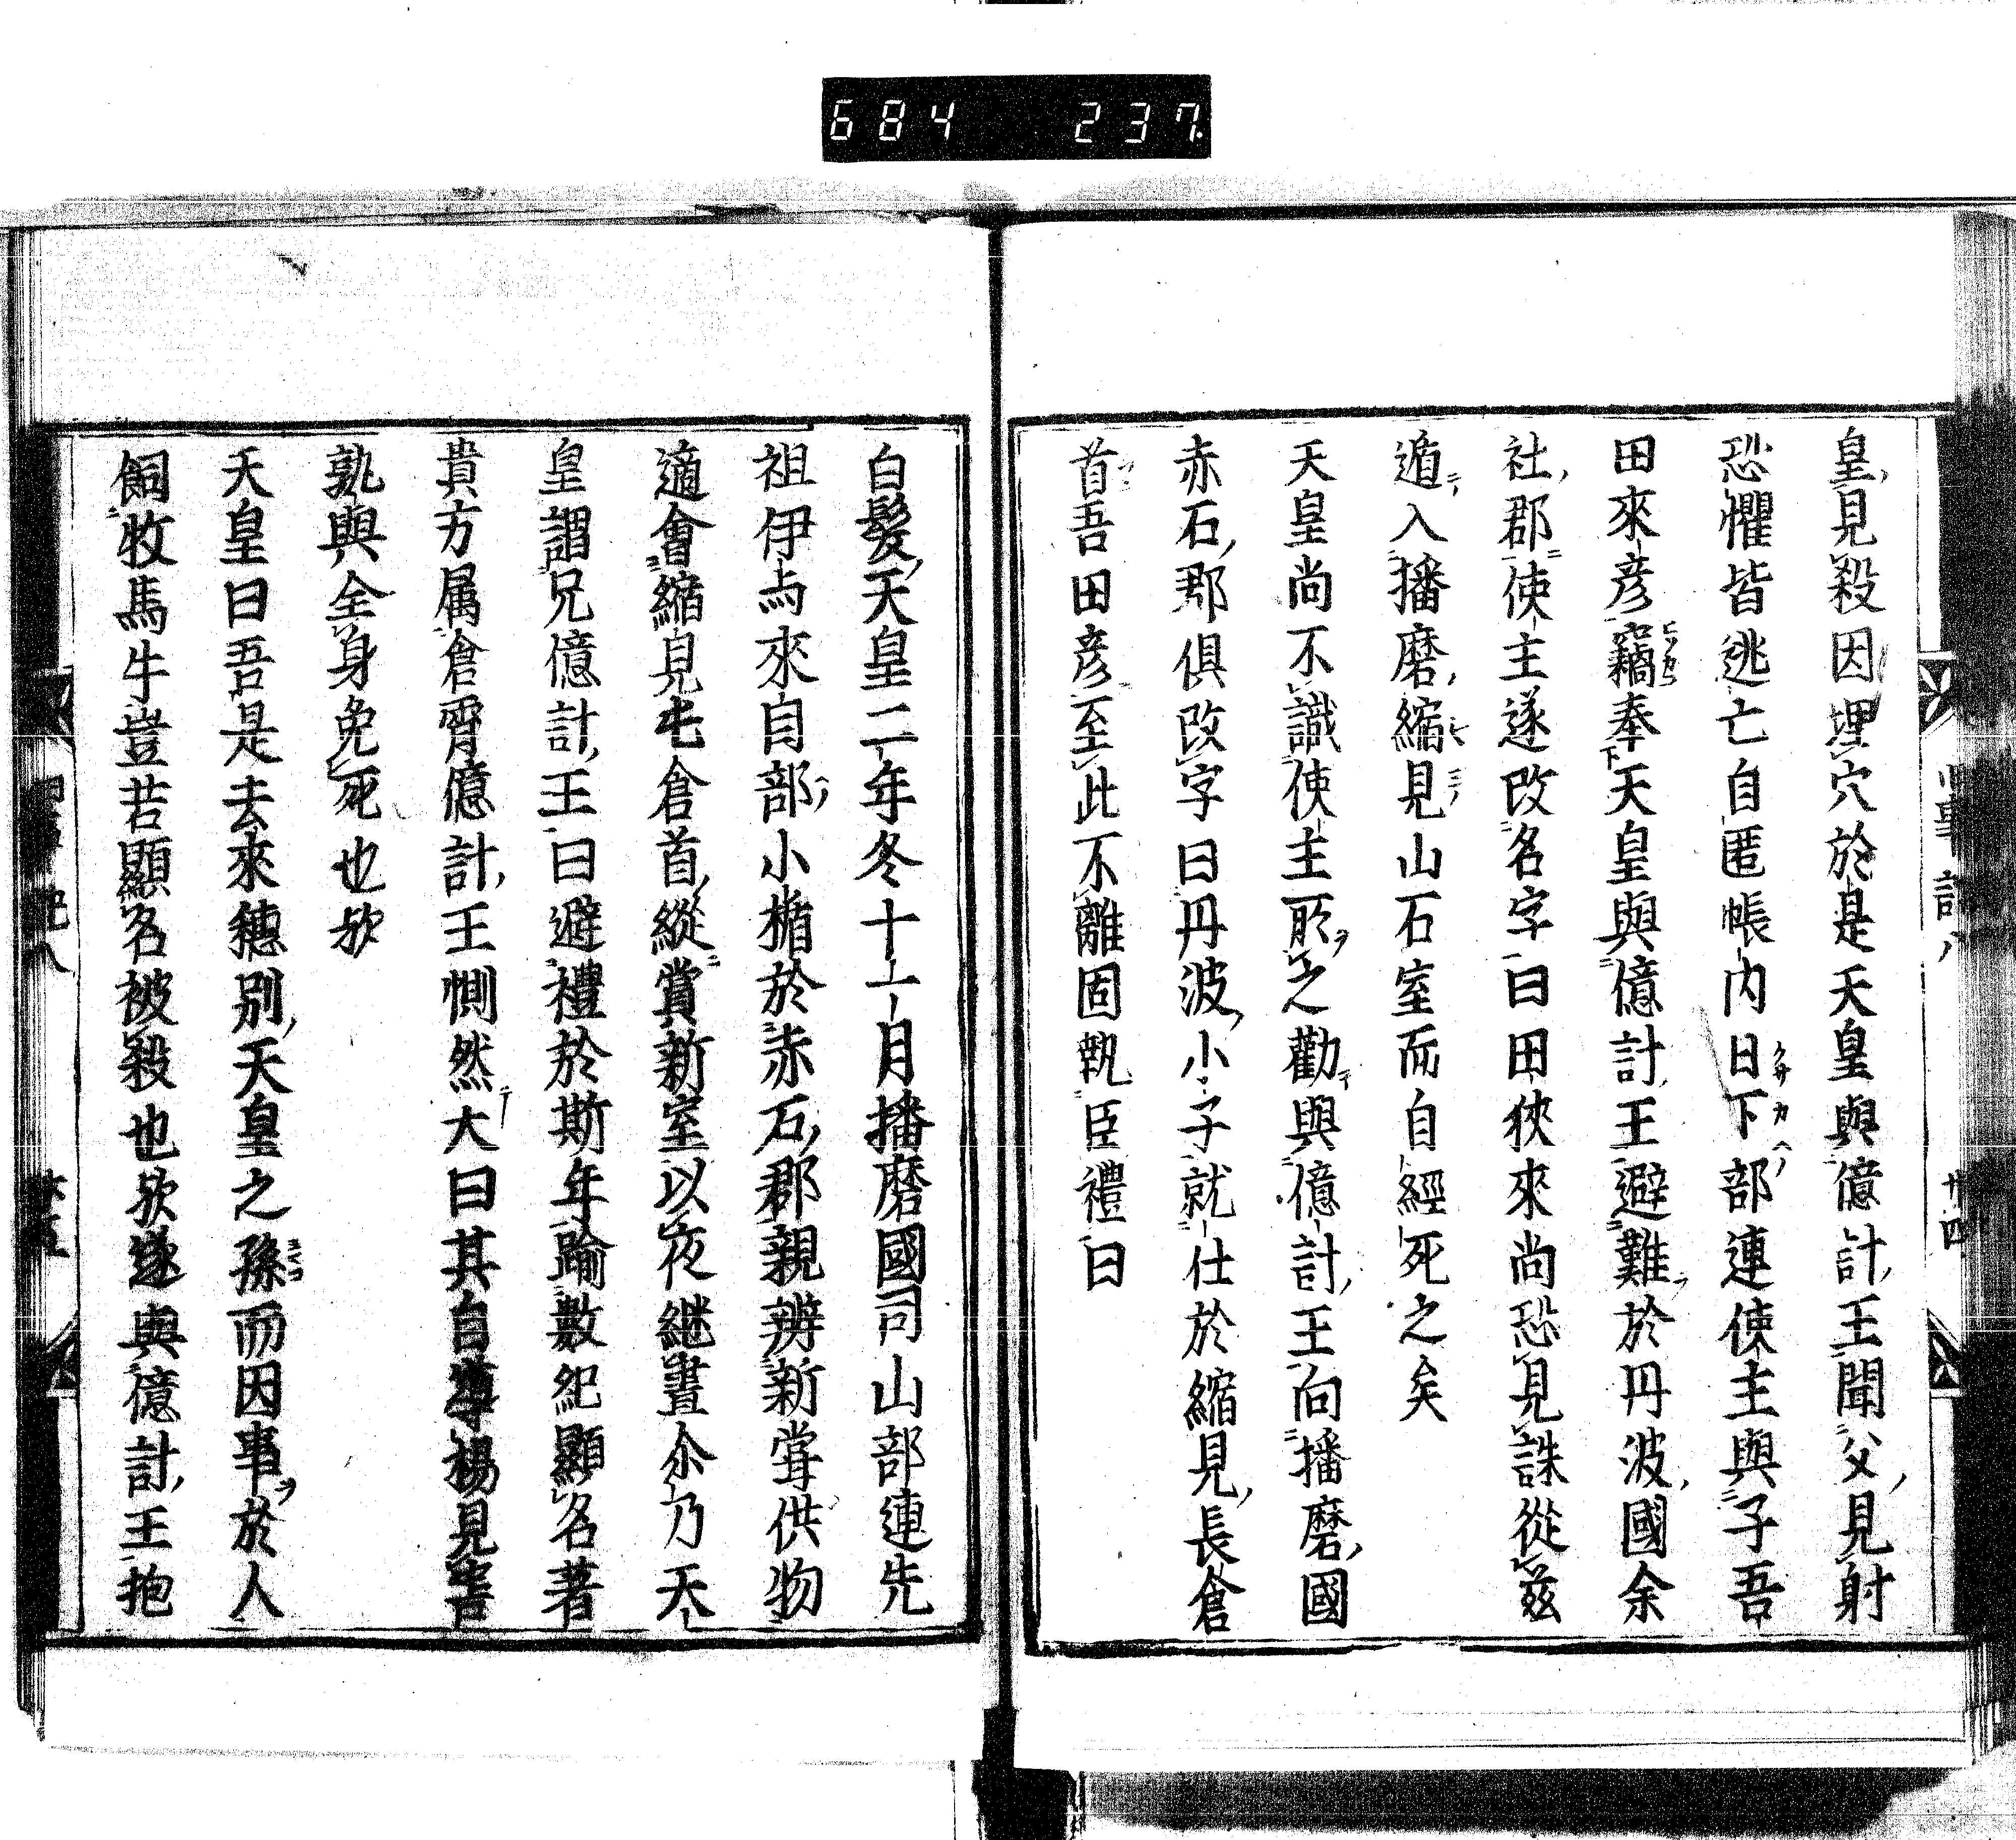 684 237
皇見殺因埋穴於是天皇與億計王聞父見射
恐懼皆逃亡自匿帳内日下部連使主與子吾
田來彦竊奉天皇與億計王避難於丹波國余
社郡使主遂改名字曰田狹來尚恐見誅從茲
遁入播磨縮見山石室而自經死之矣
天皇尚不識使主所之勸與億計王向播磨國
赤石郡俱改字曰丹波小子就仕於縮見長倉
首吾田彦至此不離固執臣禮曰
白髮天皇二年冬十一月播磨國司山部連先
祖伊与來自部小楯於赤石郡親辨新甞供物
適會縮見屯倉首縱賞新室以夜継晝尒乃天
皇謂兄億計王曰避禮於斯年踰數紀顯名著
貴方属倉霄億計王惻然大曰其自導楊見害
孰與全身免死也欤
天皇曰吾是去來穗別天皇之孫而因事於人
飼牧馬牛豈若顯名被殺也欤遂與億計王抱
廿四